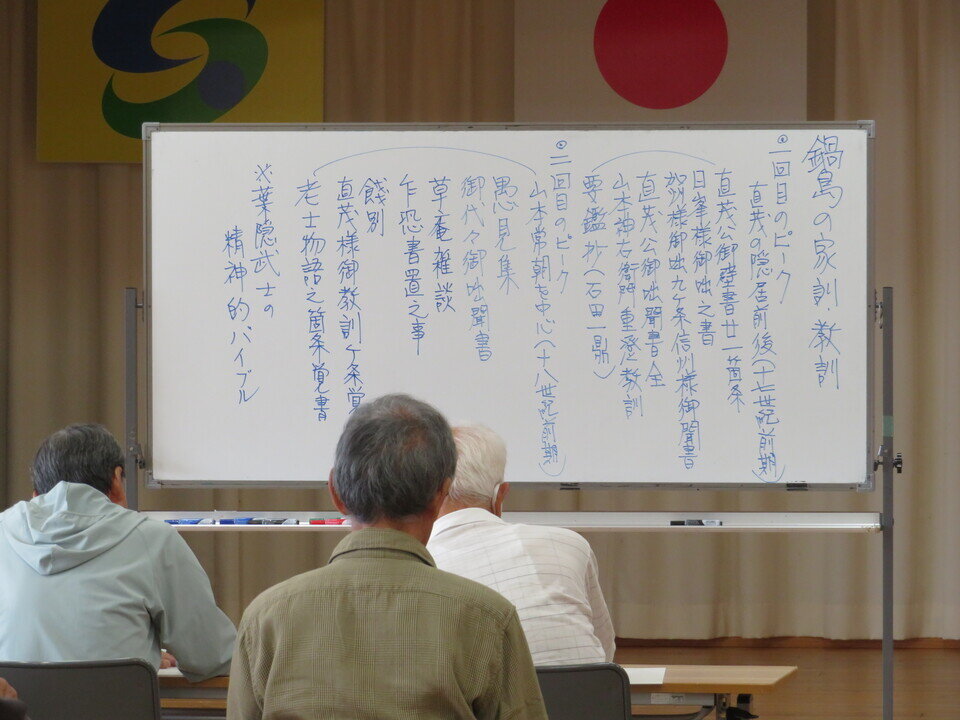 鍋島の家訓・教訓
◎一回目のピーク
直茂の隠居前後(十七世紀前期)
直茂公御壁書廿一箇条
日峯様御咄之書
賀州様御咄九ケ条信州様御聞書
直茂公御咄聞書全
山本神右衛門重澄教訓
要鑑抄(石田一鼎)
◎二回目のピーク
山本常朝を中心(十八世紀前期)
愚見集
御代々御咄聞書
草庵雑談
乍恐書置之事
餞別
直茂様御教訓ケ条覚
老士物語之箇条覚書
※葉隠武士の
精神的バイブル